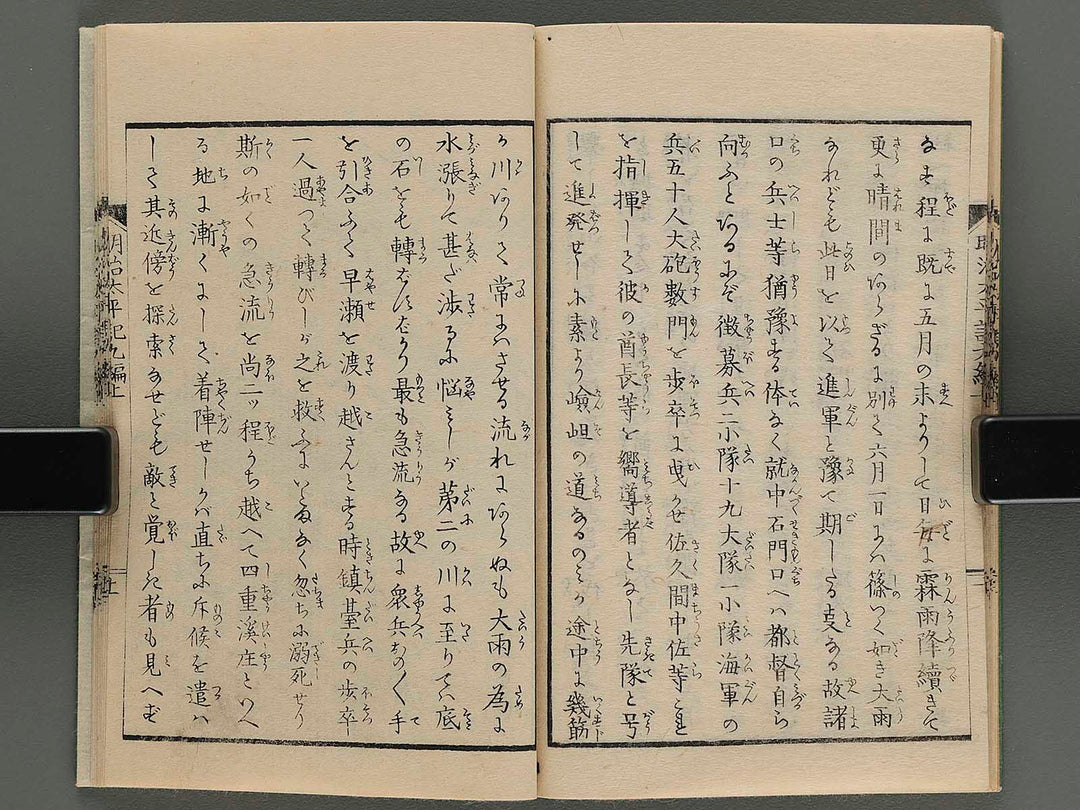 なす程に既に五月の末よりして日毎に霖雨降續きて
更に晴間のあらざるに別て六月一日には篠つく如き大雨
なれども此日を以て進軍と豫て期したる支なる故諸
口の兵士等猶豫する体なく就中石門口へは都督自ら
向ふとあるにぞ徴募兵二小隊十九大隊一小隊海軍の
兵五十人大砲数門を歩卒に曳かせ佐久間中佐等これ
を指揮して彼の酋長等を嚮導者となし先隊と号
して進発せしに素より嶮岨の道なるのみか途中に幾筋
か川ありて常にはさせる流れにあらぬも大雨の為に
水漲りて甚だ渉るに悩みしが第二の川に至りては底
の石をも轉ばすばかり最も急流なる故に衆兵おのく手
を引合ふて早瀬を渡り越さんとする時鎮臺兵の歩卒
一人過つて轉びしが之を救ふにいとまなく忽ちに溺死せり
斯の如くの急流を尚二ッ程うち越へて四重溪庄といへ
る地に漸くにして着陣せしかば直ちに斥候を遣は
して其近傍を探索なせども敵と覚しき者も見へず
明治太平記九編上